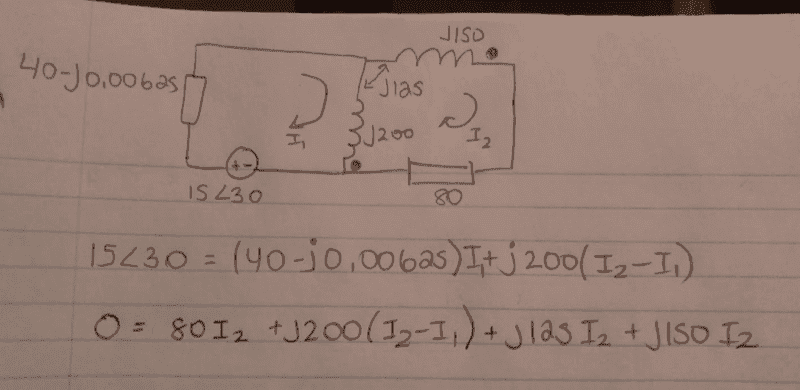 J150
40-J0,00625
J125
I1
J200
I2
+-
15∠30
80
15∠30 = (40-j0,00625)I1+j200(I2-I1)
0 = 80I2 +J200(I2-I1)+J125I2+J150I2